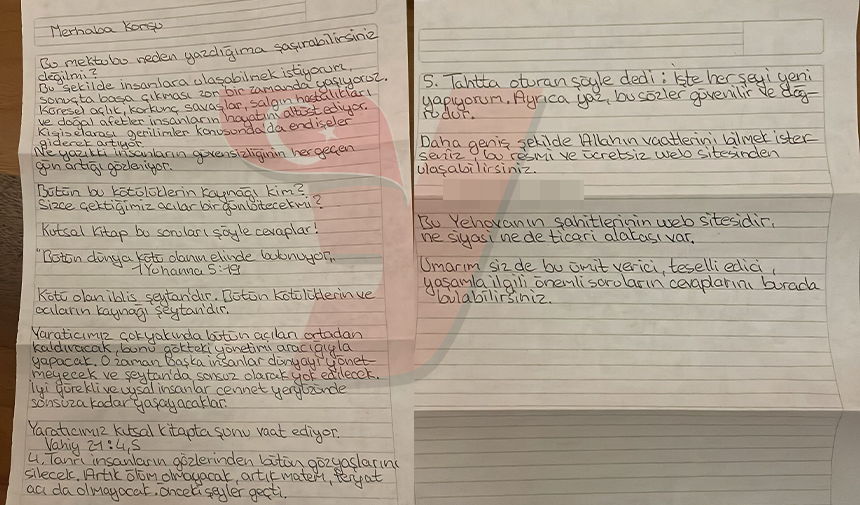 Merhaba Komşu
Bu mektubu neden yazdığıma şaşırabilirsiniz
değilmi?
Bu şekilde insanlara ulaşabilmek istiyorum,
sonuşta başa çıkması zor bir zamanda yaşıyoruz.
Küresel açlık, korkunç savaşlar, salgın hastalıkları
ve doğal afetler insanların hayatını altüst ediyor.
Kişiselarası gerilimler konusunda'da endişeler
giderek artıyor.
Ne yazıkki insanların güvensizliğinin her geçen
gün artığı gözleniyor.
Bütün bu kötülüklerin kaynağı kim?
Sizce çektiğimiz acılar bir gün bitecekmi?
Kutsal Kitap bu soruları şöyle cevaplar!
"Bütün dünya kötü olanın elinde bulunuyor,
1Yohanna 5:19
Kötü olan iblis şeytan'dır. Bütün kötülüklerin ve
acıların kaynağı şeytan'dır.
Yaratıcımız çok yakında bütün acıları ortadan
kaldıracak, bunu gökteki yönetimi aracığıyla
yapacak. O zaman başka insanlar dünyayı yönet-
meyecek ve şeytan'da sonsuz olarak yok edilecek.
İyi yürekli ve uysal insanlar cennet yeryüzünde
sonsuza kadar yaşayacaklar.
Yaratıcımız kutsal kitapta şunu vaat ediyor.
Vahiy 21:4,5
4. Tanrı insanların gözlerinden bütün gözyaşlarını
silecek. Artık ölüm olmayacak, artık matem, feryat
acı da olmayacak. Önceki şeyler geçti.
5. Tahtta oturan şöyle dedi: İşte her şeyi yeni
yapıyorum. Ayrıca yaz, bu sözler güvenilir ve doğ-
rudur.
Daha geniş şekilde Allahın vaatlerini bilmek ister-
seniz, bu resmi ve ücretsiz web sitesinden
ulaşabilirsiniz.
Bu Yehovanın şahitlerinin web sitesidir,
ne siyasi ne de ticari alatası var.
Umarım siz de bu ümit verici, teselli edici,
yaşamla ilgili önemli soruların cevaplarını burada
bulabilirsiniz.